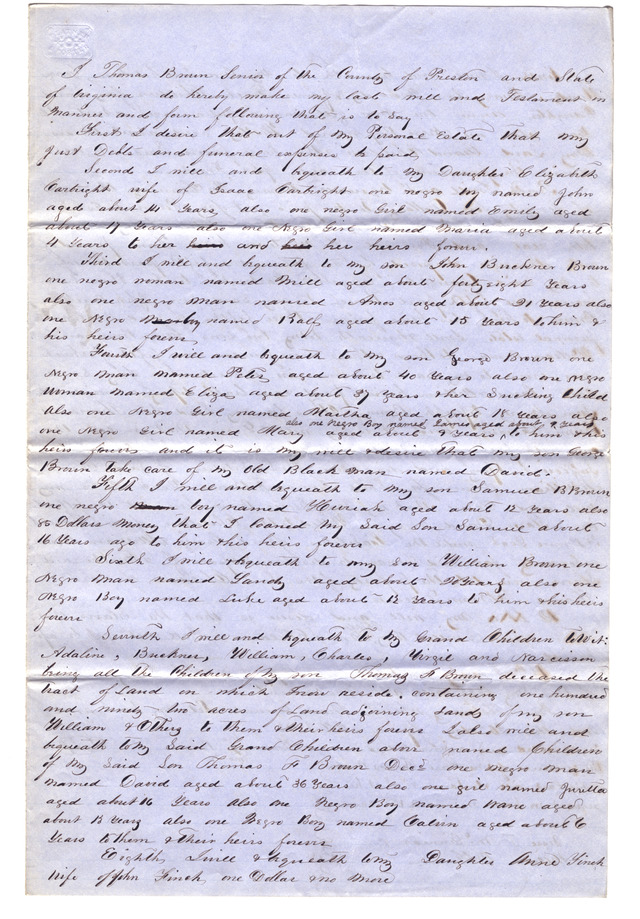 I Thomas Brown Senior of the County of Preston and State
of Virginia do hereby make my last will and Testament in
manner and form following that is to say
First I desire that out of my Personal Estate that my
Just Debts and funeral expenses to paid
Second I will and bequeath to my Daughter Elizabeth
Cartright wife of Isaac Cartright one negro boy named John
aged about 14 Years, also one negro Girl named Emily aged
about 7 Years also one Negro Girl named Maria aged about
4 Years to her heirs and his her heirs forever.
Third I will and bequeath to my son John Buckner Brown
one negro woman named Mill aged about forty eight Years
also one negro man named Amos aged about 21 Years also
one Negro named Ralf aged about 15 Years to him &
his heirs forever
Fourth I will and bequeath to my son George Brown one
Negro Man named Peter, aged about 40 Years also one negro
woman named Eliza aged about 37 Years & her Sucking Child
also one Negro Girl named Martha aged about 18 Years also
also one Negro Boy named James aged about 7 Years
one Negro Girl named Mary aged about 9 Years, to him & his
heirs forever and it is my will & desire that my son George
Brown take care of my Old Black man named David.
Fifth I will and bequeath to my son Samuel B Brown
one negro man boy named aged about 12 Years also
80 Dollars Money that I loaned my Said Son Samuel about
16 Years ago to him & his heirs forever
Sixth I will & bequeath to my son William Brown one
Negro man named Sandy aged about 20 Years also one
Negro Boy named Luke aged about 12 Years to him & his heirs
forever
Seventh I will and bequeath to my Grand Children to wit:
Adaline, Buckner, William, Charles, Virgil and Narcissa
being all the Children of my son Thomas F Brown deceased the
tract of Land on which I now reside, containing one hundred
and ninety two acres of Land adjoining lands of my son
William & Others to them & their heirs forever I also will and
bequeath to my Said Grand Children above named Children
of my Said Son Thomas F Brown Decd one negro man
named David aged about 36 Years also one girl named Juretta
aged about 16 Years also one Negro Boy named aged
about 13 Years also one Negro Boy named Calvin aged about 6
Years to them & their heirs forever
Eighth, I will & bequeath to my Daughter Anne Finch
wife of John Finch one Dollar & no more